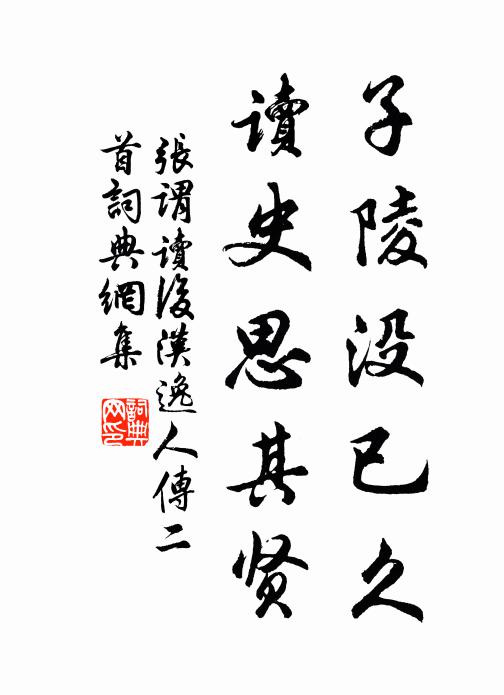 子陵没已久
讀史思其贤
張謂讀後漢逸人傳二
首詞典網集
詞典
网印